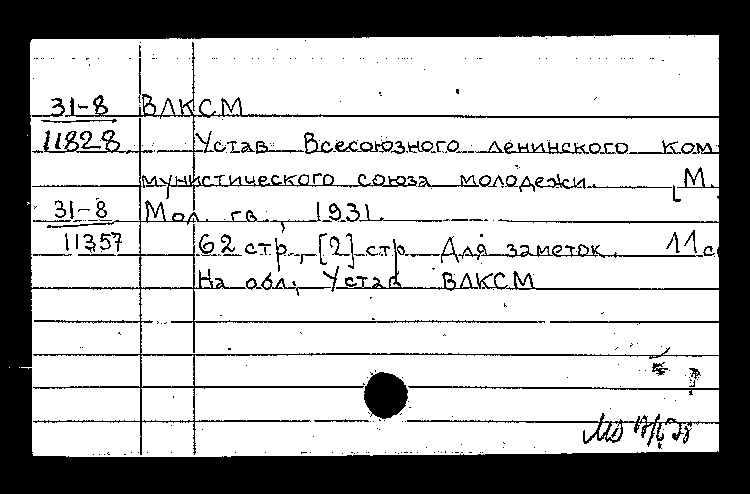 31-8 ВЛКСМ
11828 Устав Всесоюзного ленинского ком
мунистического союза молодежи. [М.
31-8 Мол. гв., 1931.
11357 62 стр., [2] стр. Для заметок. 11с
На обл.: Устав ВЛКСМ